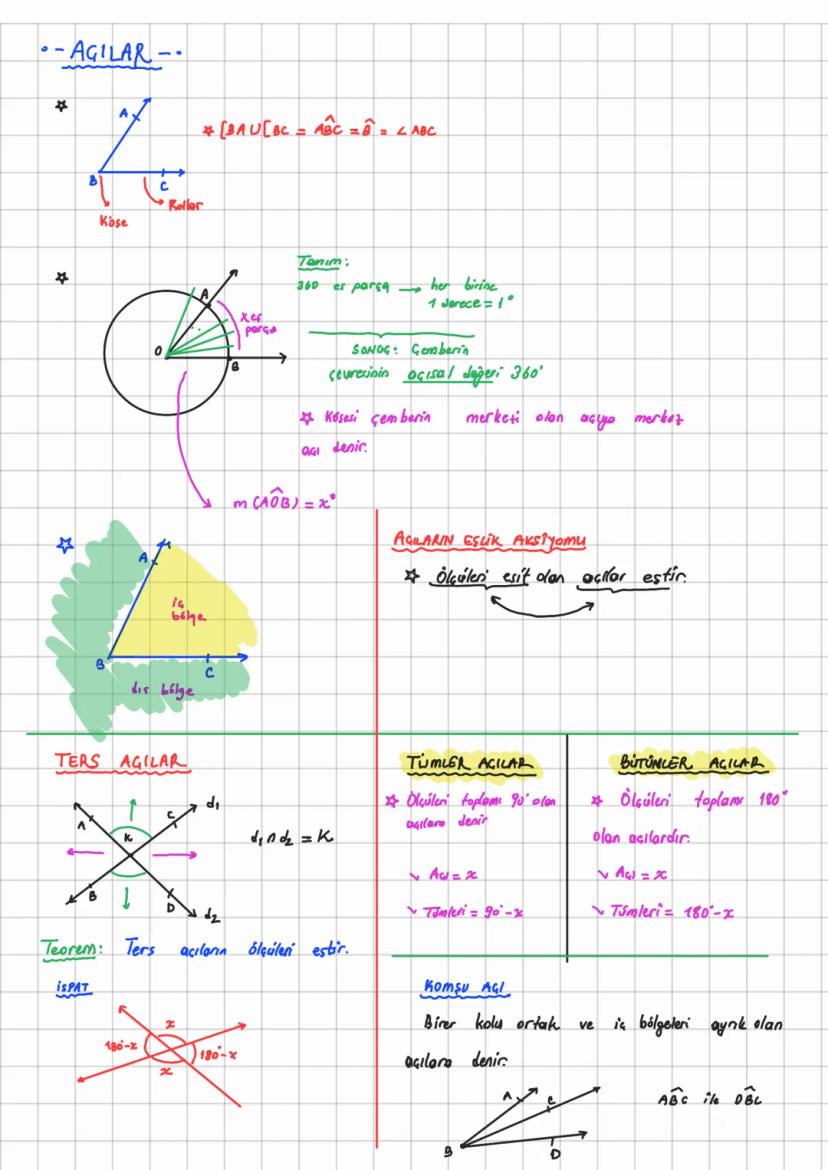 AÇILAR
A
B
C
Köşe
Kollar
[BA U [BC = ABC = B = ∠ABC
Tanım:
360 eş parça → her birine
1 derece = 1°
A
x eş
parça
O
B
SONUÇ: Çemberin
çevresinin açısal değeri 360°
Köşesi çemberin merkezi olan açıya merkez
açı denir.
m(AOB) = x°
A
iç
bölge
B
C
dış bölge
AÇILARIN EŞLİK AKSİYOMU
Ölçüleri eşit olan açılar eştir.
TERS AÇILAR
A
C
d1
K
B
D
d2
d1 ∩ d2 = K
Teorem: Ters açıların ölçüleri eştir.
İSPAT
x
180°-x
180°-x
x
TÜMLER AÇILAR
Ölçüleri toplamı 90° olan
açılara denir
Açı = x
Tümleri = 90°-x
BÜTÜNLER AÇILAR
Ölçüleri toplamı 180°
olan açılardır.
Açı = x
Tümleri = 180°-x
KOMŞU AÇI
Birer kolu ortak ve iç bölgeleri ayrık olan
açılara denir.
A
C
B
D
ABC ile DBC